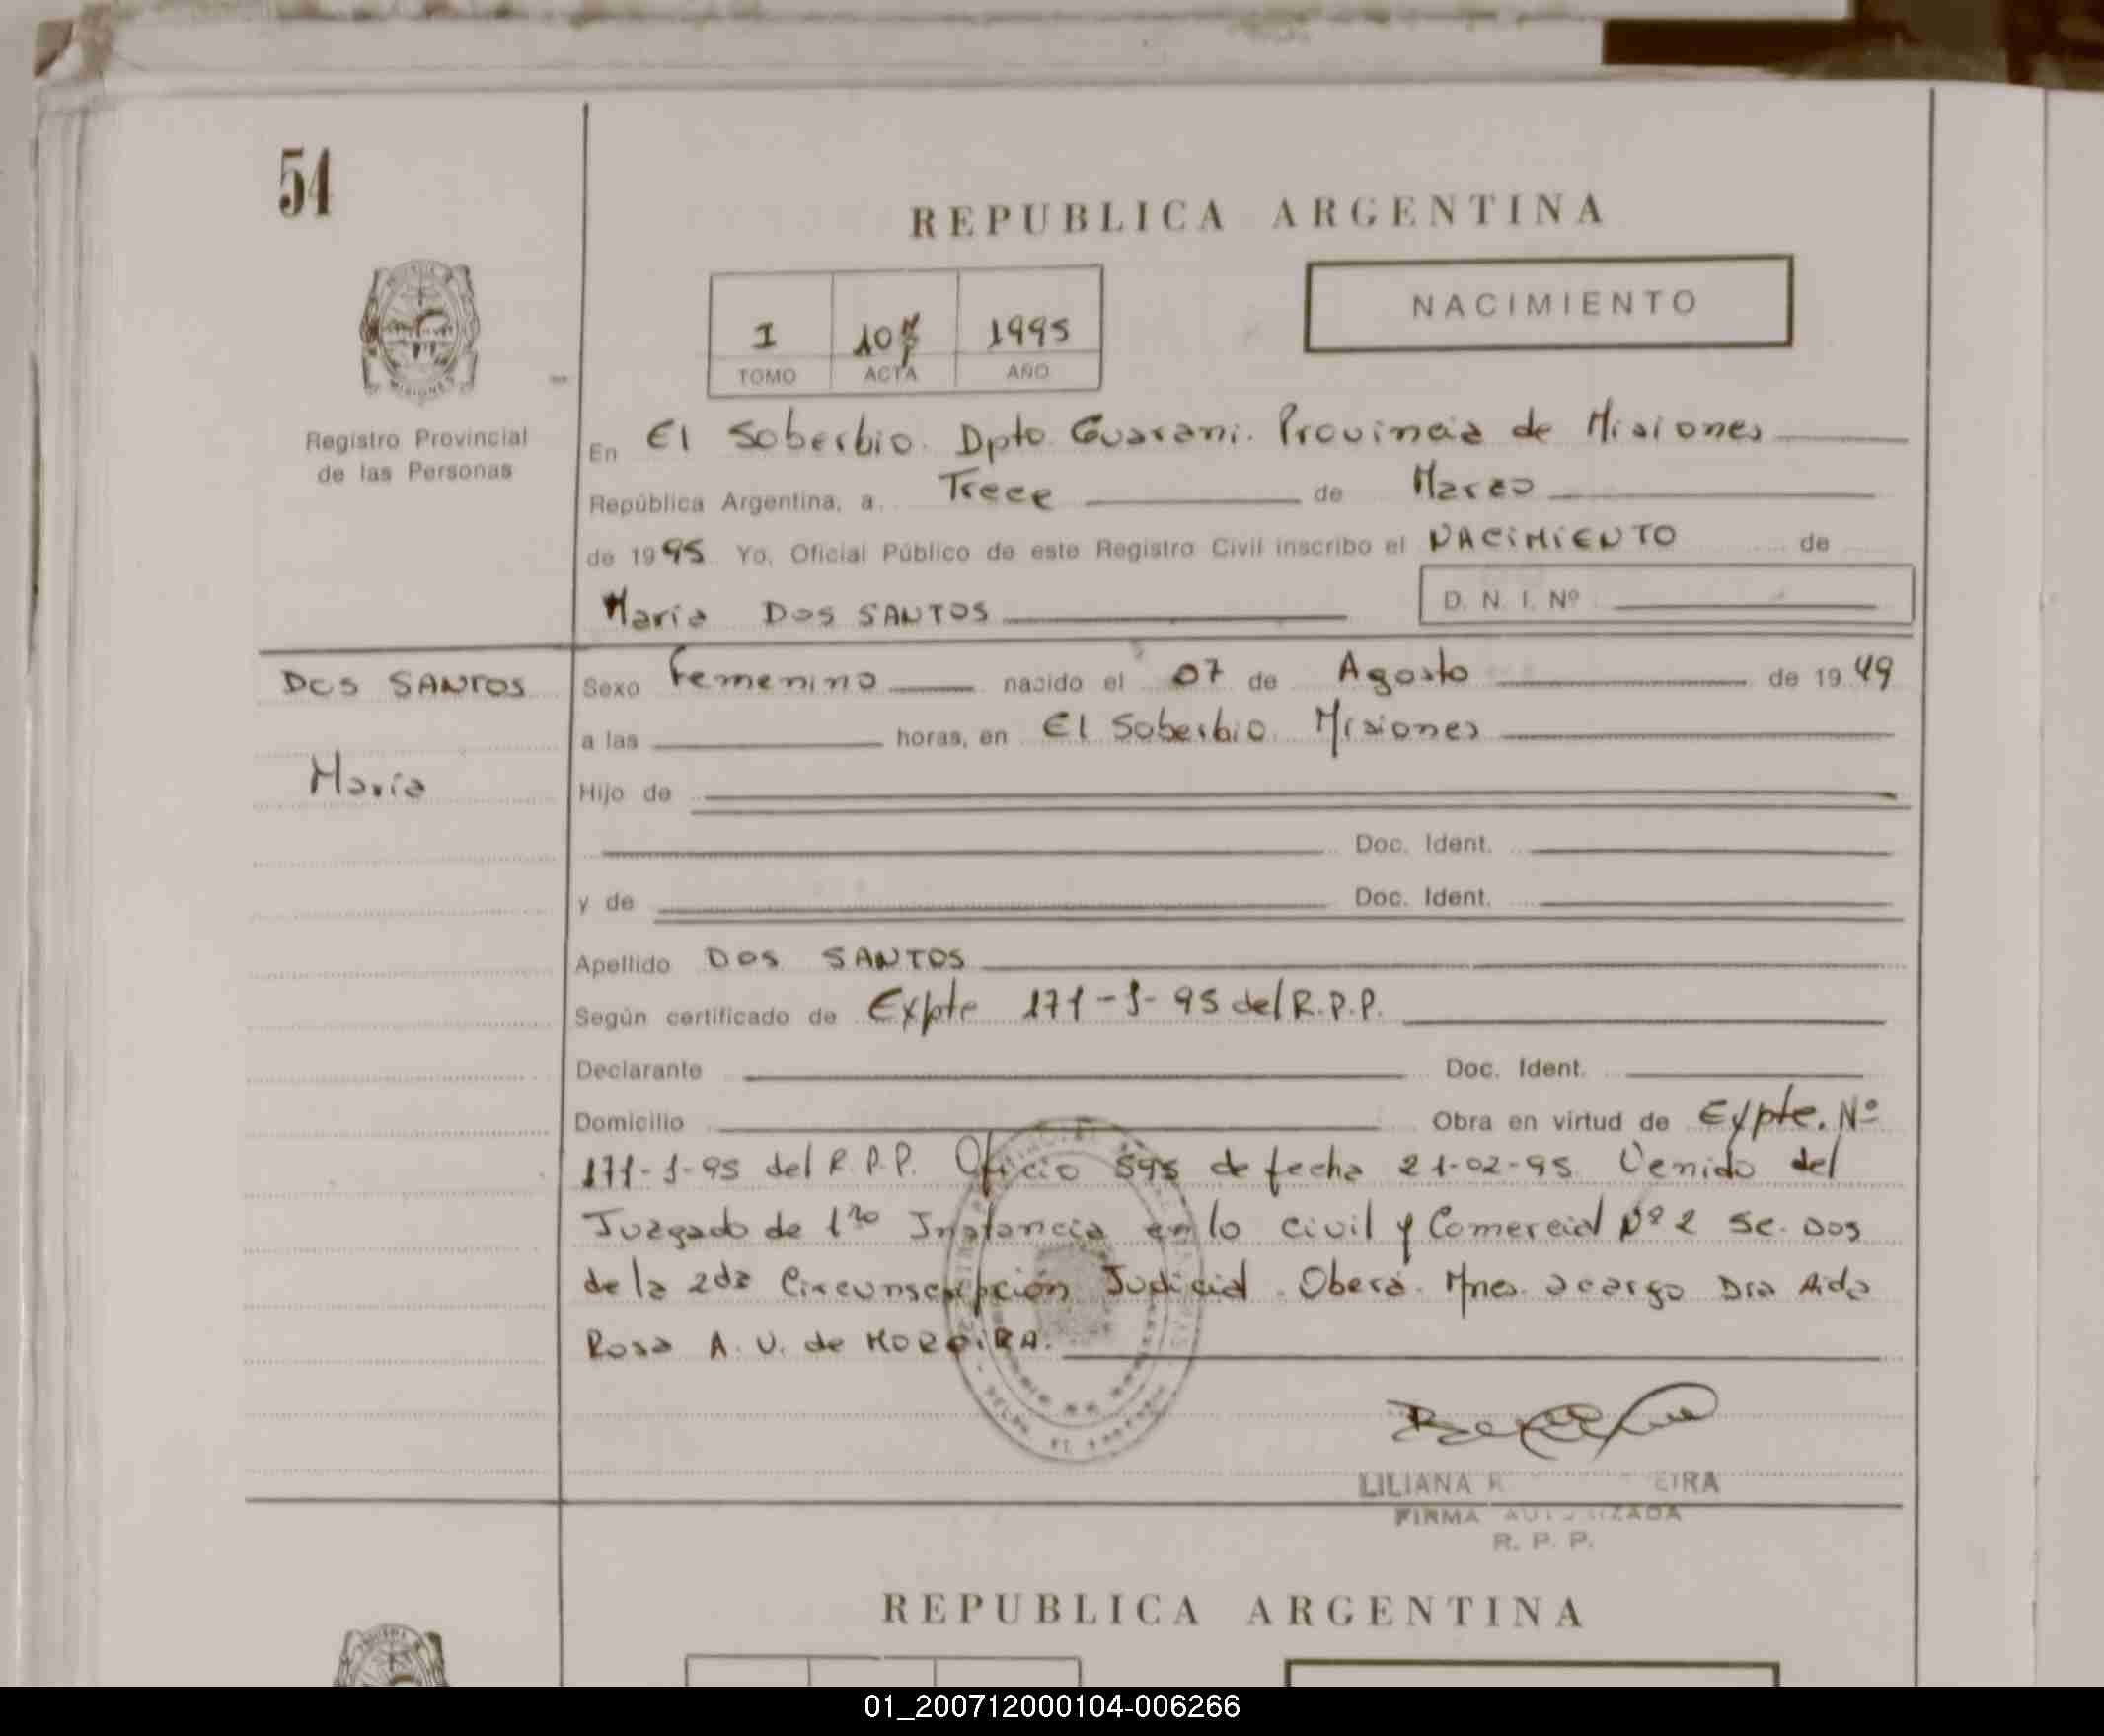 54
REPUBLICA ARGENTINA
NACIMIENTO
I 1995
TOMO ACTA AÑO
MISIONES
Registro Provincial
de las Personas
En El Soberbio. Dpto Guarani. Provincia de Misiones
República Argentina, a Trece de Marzo
de 1995 Yo, Oficial Público de este Registro Civil inscribo el NACIMIENTO de
Maria DOS SANTOS
D. N. I. Nº
DOS SANTOS
Maria
Sexo Femenino nacido el 07 de Agosto de 1949
a las horas, en El Soberbio. Misiones
Hijo de
Doc. Ident.
y de Doc. Ident.
Apellido DOS SANTOS
Según certificado de Expte 171-J-95 del R.P.P.
Declarante Doc. Ident.
Domicilio Obra en virtud de Expte. Nº
171-J-95 del R.P.P. Oficio 595 de fecha 21-02-95. Venido del
Juzgado de 1ra Instancia en lo civil y Comercial Nº 2 Sc. Dos
de la 2da Circunscripción Judicial. Oberá. Mnes. a cargo Dra Aida
Rosa A. V. de MOREIRA.
LILIANA R EIRA
FIRMA AUTORIZADA
R. P. P.
REPUBLICA ARGENTINA
01_200712000104-006266